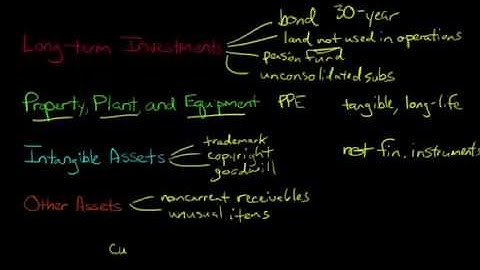 bond 30-year
Long-term Investments
land not used in operations
pension fund
unconsolidated subs
Property, Plant, and Equipment PPE tangible, long-life
trademark
Intangible Assets
copyright
goodwill
not fin. instruments
Other Assets
noncurrent receivables
unusual items
Cu